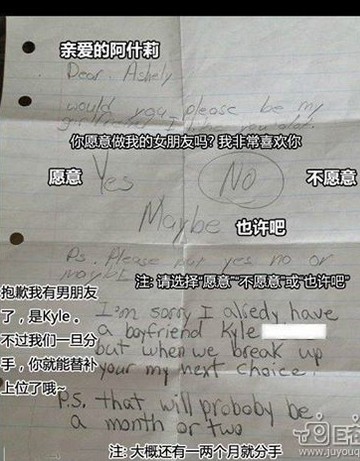 亲爱的阿什莉
Dear Ashely
would you please be my
girlfriend I like you alot.
你愿意做我的女朋友吗? 我非常喜欢你
愿意 Yes No 不愿意
Maybe 也许吧
Ps. Please put yes no or
maybe
注: 请选择"愿意""不愿意"或"也许吧"
抱歉我有男朋友
了，是Kyle 。
不过我们一旦分
手，你就能替补
上位了哦~
I'm sorry I alredy have
a boyfriend Kyle
but when we break up
your my next choice.
P.S. that will proboby be
a month or two
注: 大概还有一两个月就分手
www.juyouq